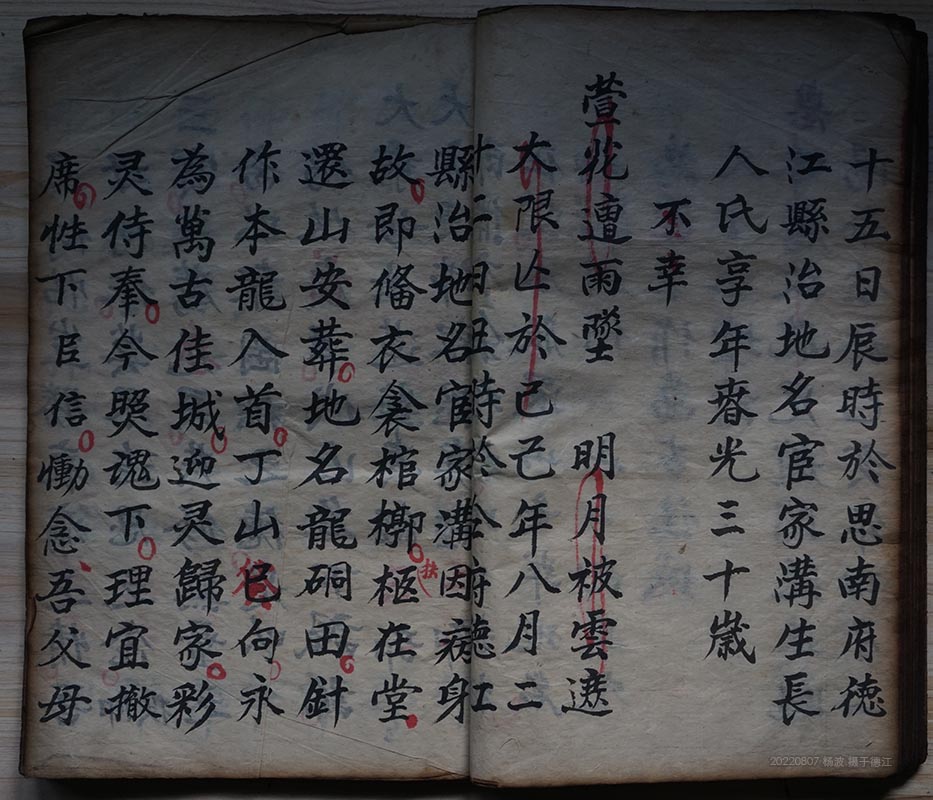 十五日辰時於思南府德
江縣治地名宦家溝生長
人氏享年春光三十歲
不幸
萱花遭雨墜 明月被雲遮
大限亾於己己年八月二
十二日丑時於府德江
縣治地名宦家溝因病身
故即俻衣衾棺槨柩在堂
扶
還山安葬地名龍硐田針
作本龍入首丁山巳向永
為萬古佳城迎灵歸家彩
灵侍奉今照魂下理宜撤
席性下臣信慟念吾父母
20220807 杨波 摄于德江